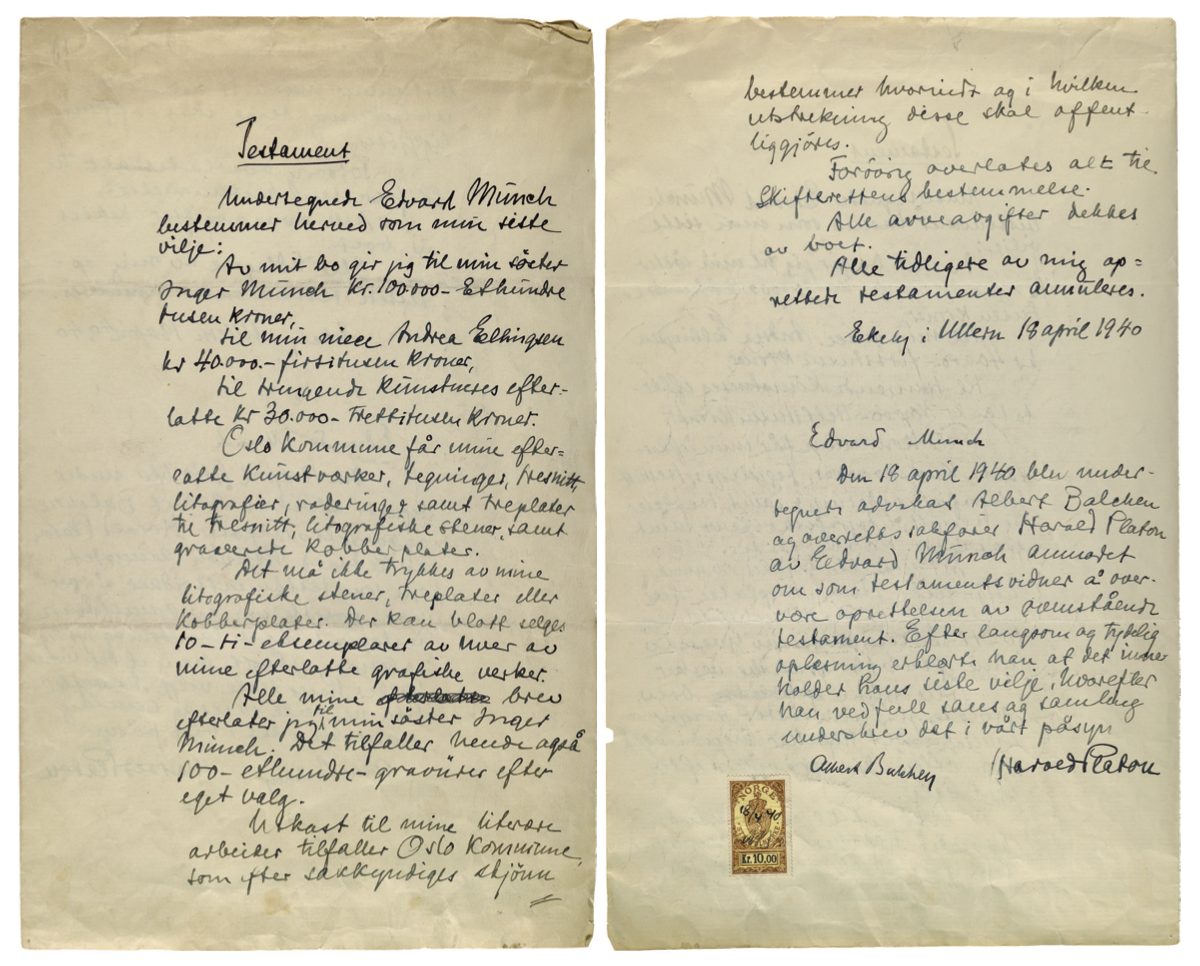 Testament
Undertegnede Edvard Munch
bestemmer herved som min siste
vilje:
Av mit bo gir jeg til min söster
Inger Munch Kr. 100000 – Ethundre
tusen kroner,
til min niece Andrea Ellingsen
kr 40.000.– firtitusen kroner,
til trengende kunstneres efter-
latte kr 30.000 – trettitusen kroner.
Oslo kommune får mine efter-
latte kunstværker, tegninger, tresnitt,
litografier, raderinger samt treplater
til tresnitt, litografiske stener, samt
graverede kobberplater.
Det må ikke trykkes av mine
litografiske stener, treplater eller
kobberplater. Der kan blott selges
10 – ti – eksemplarer av hver av
mine efterlatte grafiske verker.
Alle mine brev
efterlater jeg til min söster Inger
Munch. Det tilfaller hende også
100 – ethundre – gravürer efter
eget valg.
Utkast til mine literære
arbeider tilfaller Oslo Kommune,
som efter sakkyndiges skjönn
bestemmer hvorvidt og i hvilken
utstrekning disse skal offent-
liggjöres.
Forövrig overlates alt til
Skifterettens bestemmelse.
Alle arveavgifter dekkes
av boet.
Alle tidligere av mig op=
rettede testamenter annuleres.
Ekely i Ullern 18 april 1940
Edvard Munch
Den 18 april 1940 blev under-
tegnede advokat Albert Balchen
og overrettssakfører Harald Platon
av Edvard Munch anmodet
om som testamentsvidner å over-
være oprettelsen av foranstående
testament. Efter langsom og tydelig
oplesning erklærte han at det inne-
holder hans siste vilje, hvorefter
han ved full sans og samling
underskrev det i vårt påsyn
Albert Balchen Harald Platon
NORGE
18/4 40
Kr. 10,00